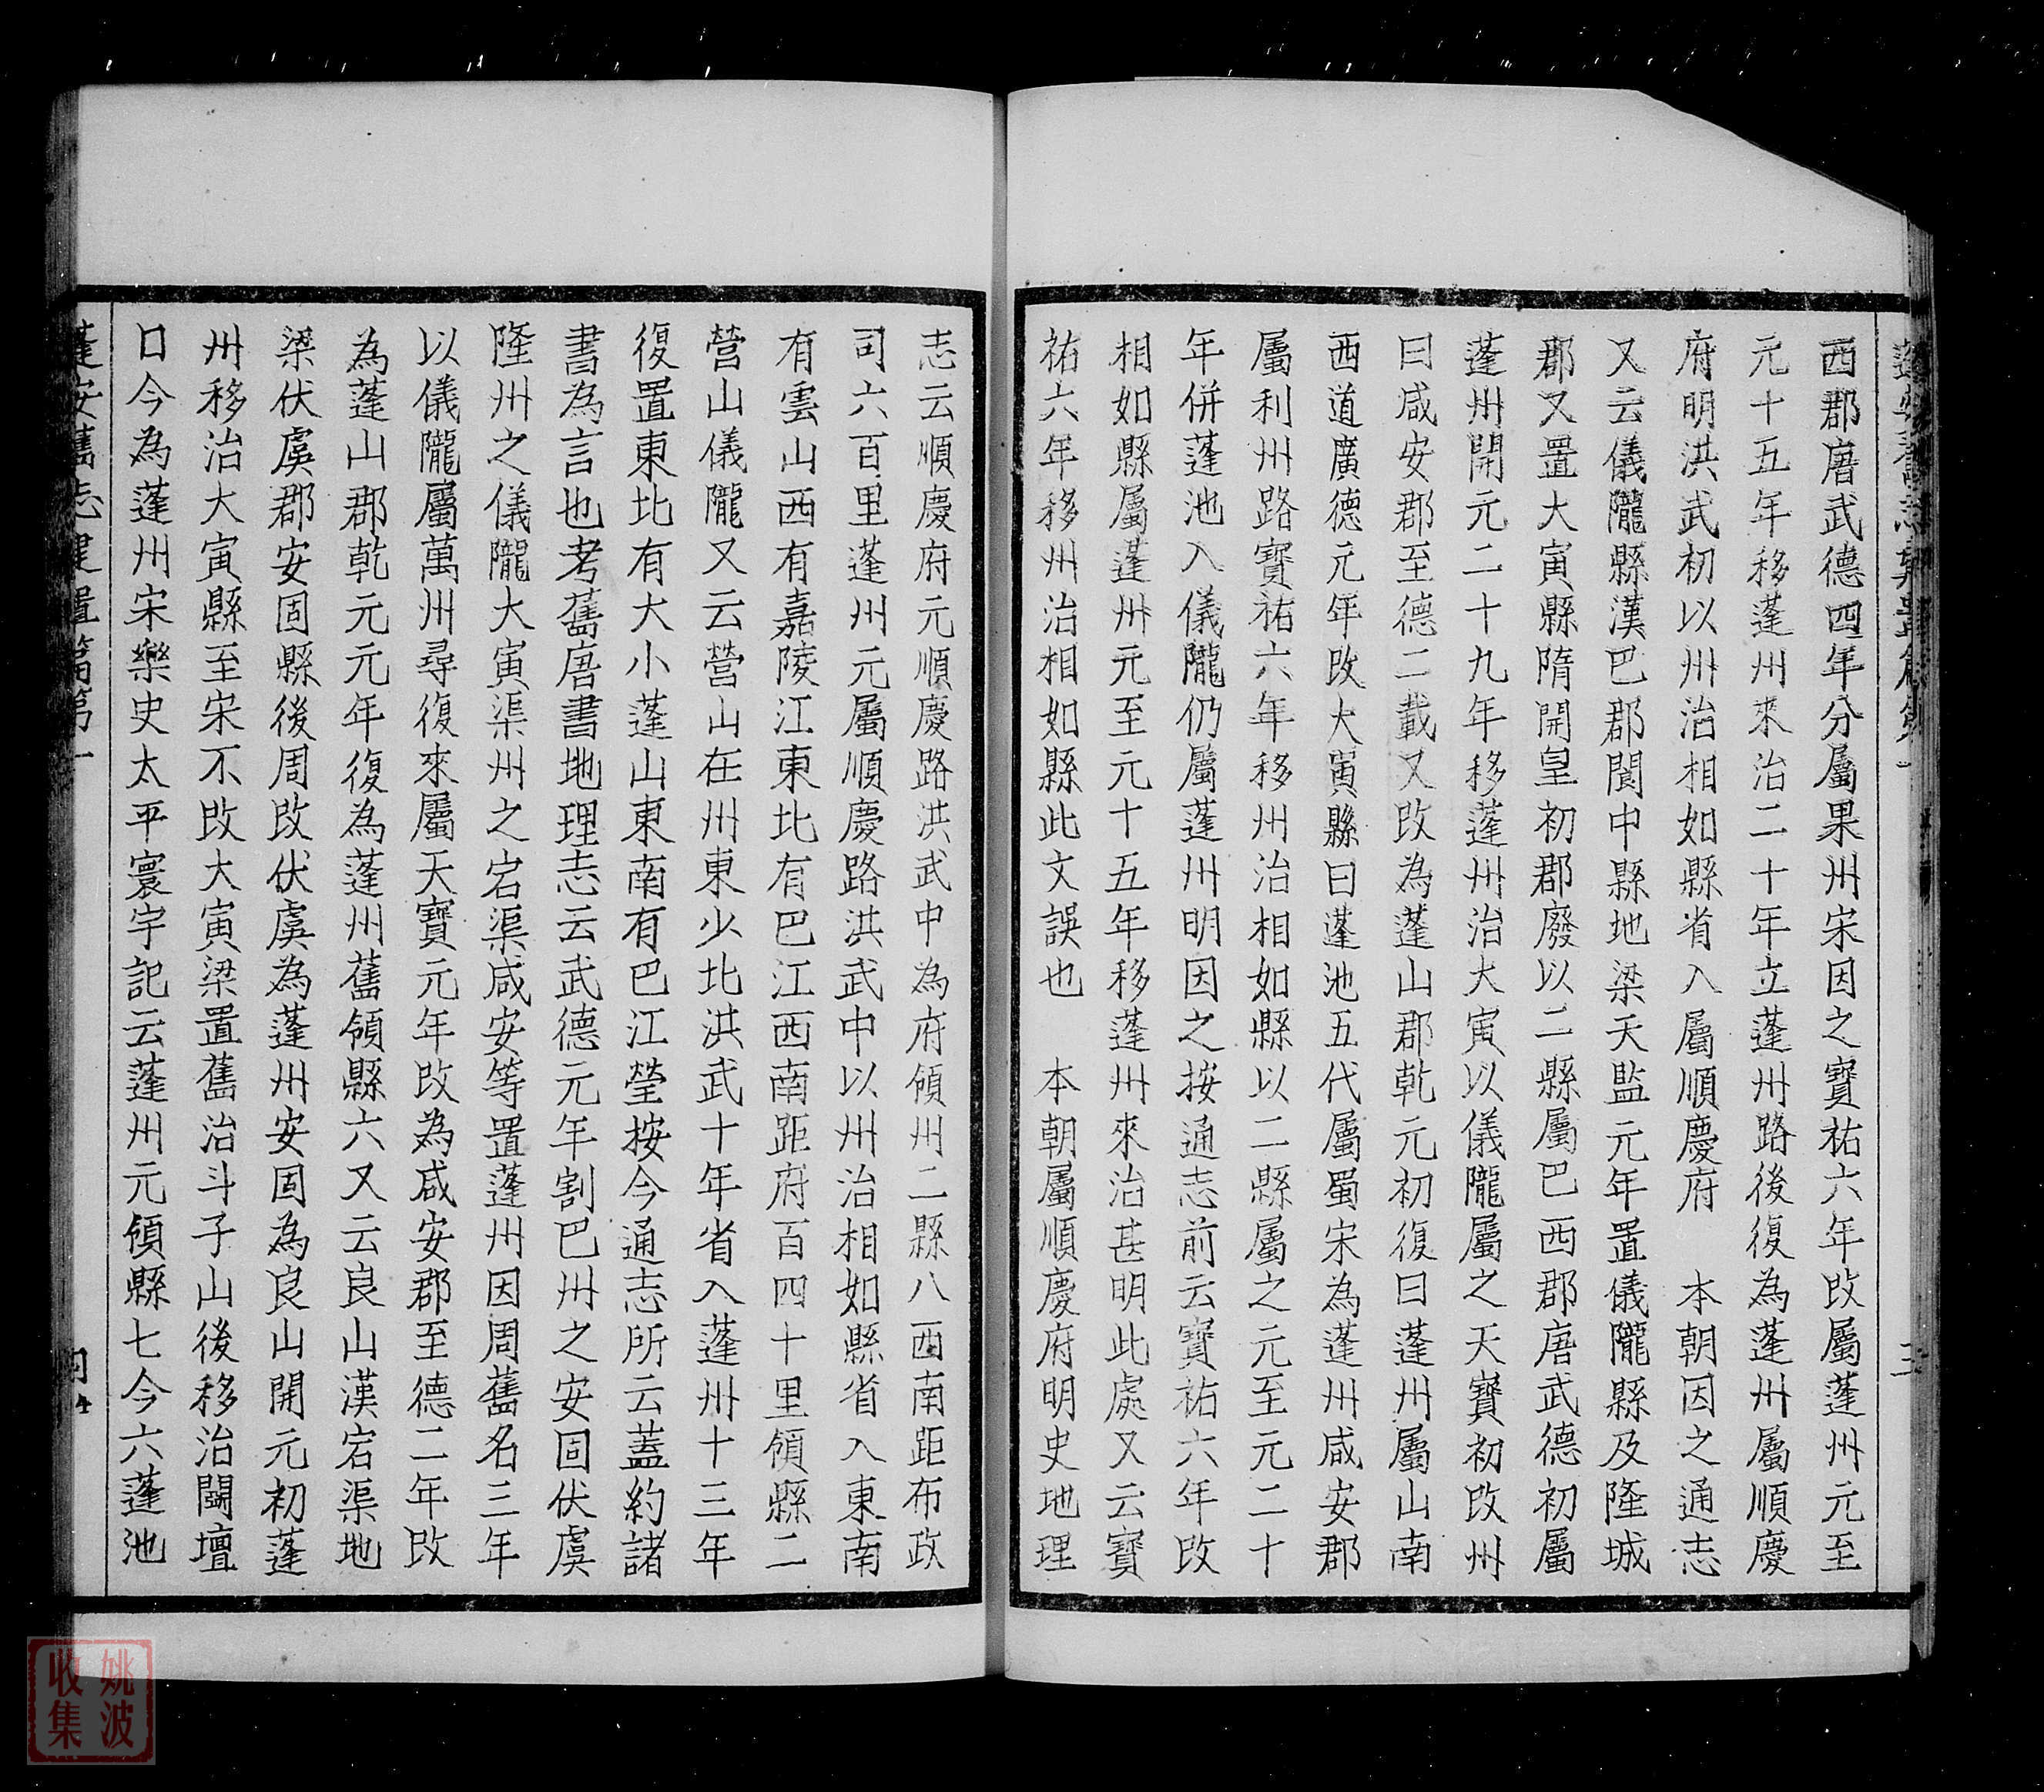 西郡唐武德四年分屬果州宋因之寶祐六年改屬蓬州元至
元十五年移蓬州來治二十年立蓬州路後復為蓬州屬順慶
府明洪武初以州治相如縣省入屬順慶府　本朝因之通志
又云儀隴縣漢巴郡閬中縣地梁天監元年置儀隴縣及隆城
郡又置大寅縣隋開皇初郡廢以二縣屬巴西郡唐武德初屬
蓬州開元二十九年移蓬州治大寅以儀隴屬之天寶初改州
曰咸安郡至德二載又改為蓬山郡乾元初復曰蓬州屬山南
西道廣德元年改大寅縣曰蓬池五代屬蜀宋為蓬州咸安郡
屬利州路寶祐六年移州治相如縣以二縣屬之元至元二十
年併蓬池入儀隴仍屬蓬州明因之按通志前云寶祐六年改
相如縣屬蓬州元至元十五年移蓬州來治甚明此處又云寶
祐六年移州治相如縣此文誤也　本朝屬順慶府明史地理
志云順慶府元順慶路洪武中為府領州二縣八西南距布政
司六百里蓬州元屬順慶路洪武中以州治相如縣省入東南
有雲山西有嘉陵江東北有巴江西南距府百四十里領縣二
營山儀隴又云營山在州東少北洪武十年省入蓬州十三年
復置東北有大小蓬山東南有巴江瑩按今通志所云蓋約諸
書為言也考舊唐書地理志云武德元年割巴州之安固伏虞
隆州之儀隴大寅渠州之宕渠咸安等置蓬州因周舊名三年
以儀隴屬萬州尋復來屬天寶元年改為咸安郡至德二年改
為蓬山郡乾元元年復為蓬州舊領縣六又云良山漢宕渠地
梁伏虞郡安固縣後周改伏虞為蓬州安固為良山開元初蓬
州移治大寅縣至宋不改大寅梁置舊治斗子山後移治鬭壇
口今為蓬州宋樂史太平寰宇記云蓬州元領縣七今六蓬池
蓬安舊志建置篇第一
姚波
收集